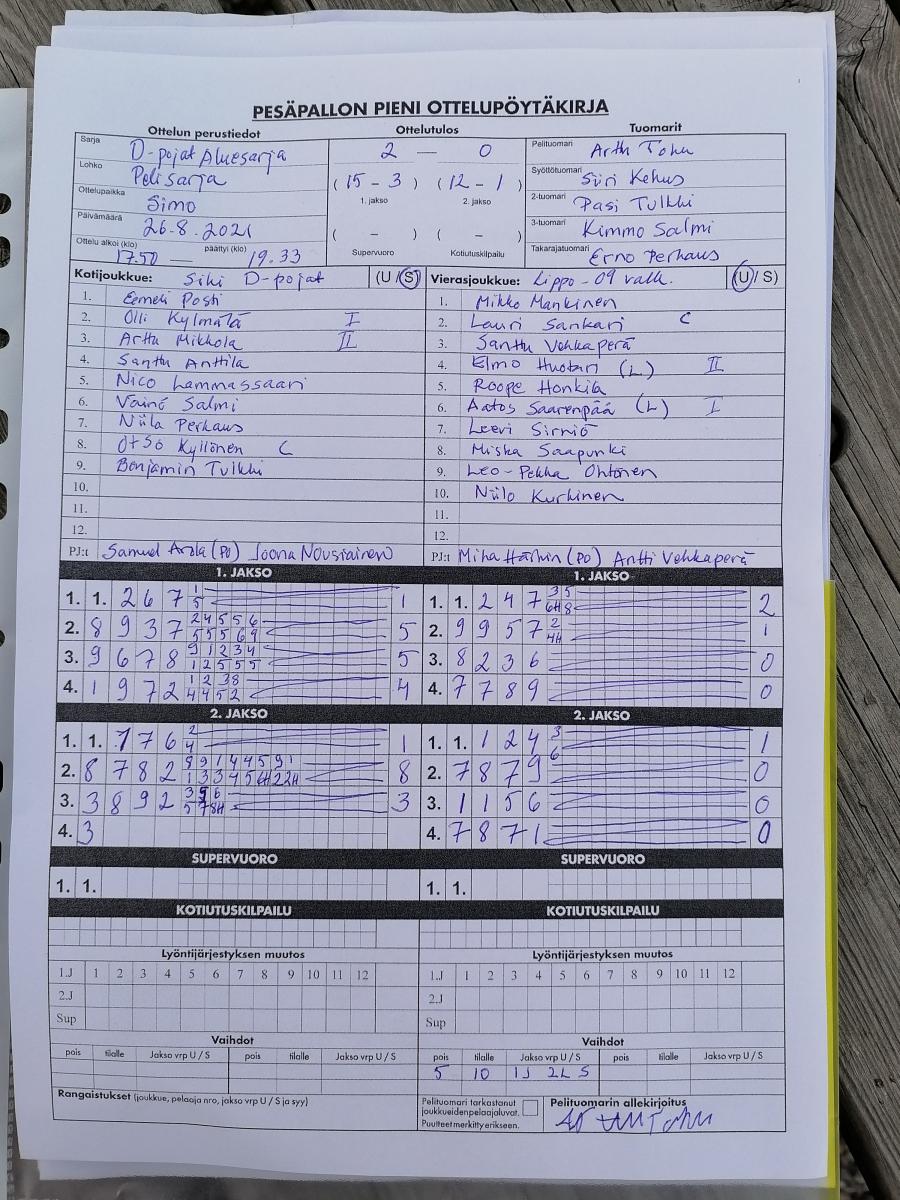 PESÄPALLON PIENI OTTELUPÖYTÄKIRJA
Ottelun perustiedot Ottelutulos Tuomarit
Sarja D-pojat Aluesarja 2 — 0 Pelituomari Arttu Tohu
Lohko Pelisarja (15 - 3) (12 - 1) Syöttötuomari Siiri Kehus
Ottelupaikka Simo 1. jakso 2. jakso 2-tuomari Pasi Tulkki
Päivämäärä 26.8.2021 ( - ) ( - ) 3-tuomari Kimmo Salmi
Ottelu alkoi (klo) 17.50 — päättyi (klo) 19.33 Supervuoro Kotiutuskilpailu Takarajatuomari Erno Perhaus
Kotijoukkue: Siki D-pojat (U / S) Vierasjoukkue: Lippo-09 valk. (U / S)
1. Eemeli Posti 1. Mikko Mankinen
2. Olli Kylmälä I 2. Lauri Sankari C
3. Arttu Mikkola II 3. Santtu Vehkaperä
4. Santtu Anttila 4. Elmo Huotari (L) II
5. Nico Lammassaari 5. Roope Honkila
6. Väinö Salmi 6. Aatos Saarenpää (L) I
7. Niila Perhaus 7. Leevi Sirniö
8. Otso Kyllönen C 8. Miska Saapunki
9. Benjamin Tulkki 9. Leo-Pekka Ohtonen
10. 10. Niilo Kurkinen
11. 11.
12. 12.
PJ:t Samuel Arola (PO) Joona Nousiainen PJ:t Miha (PO) Antti Vehkaperä
1. JAKSO 1. JAKSO
1. 1. 2 6 7 1 5 1 1. 1. 2 4 7 3 5 6H 8 2
2. 8 9 3 7 2 4 5 5 6 5 5 5 6 9 5 2. 9 9 5 7 2 4H 1
3. 9 6 7 8 9 1 2 3 4 1 2 5 5 5 5 3. 8 2 3 6 0
4. 1 9 7 2 1 2 38 4 4 5 2 4 4. 7 7 8 9 0
2. JAKSO 2. JAKSO
1. 1. 7 7 6 2 4 1 1. 1. 1 2 4 3 6 1
2. 8 7 8 2 8 2. 7 8 7 9 0
3. 3 8 9 2 3 3. 1 1 5 6 0
4. 3 4. 7 8 7 1 0
SUPERVUORO SUPERVUORO
1. 1. 1. 1.
KOTIUTUSKILPAILU KOTIUTUSKILPAILU
Lyöntijärjestyksen muutos Lyöntijärjestyksen muutos
1.J 1 2 3 4 5 6 7 8 9 10 11 12 1.J 1 2 3 4 5 6 7 8 9 10 11 12
2.J 2.J
Sup Sup
Vaihdot Vaihdot
pois tilalle Jakso vrp U / S pois tilalle Jakso vrp U / S pois tilalle Jakso vrp U / S pois tilalle Jakso vrp U / S
5 10 1J 2L S
Rangaistukset (joukkue, pelaaja nro, jakso vrp U / S ja syy) Pelituomari tarkastanut Pelituomarin allekirjoitus
joukkueidenpelaajaluvat.
Puutteet merkitty erikseen.